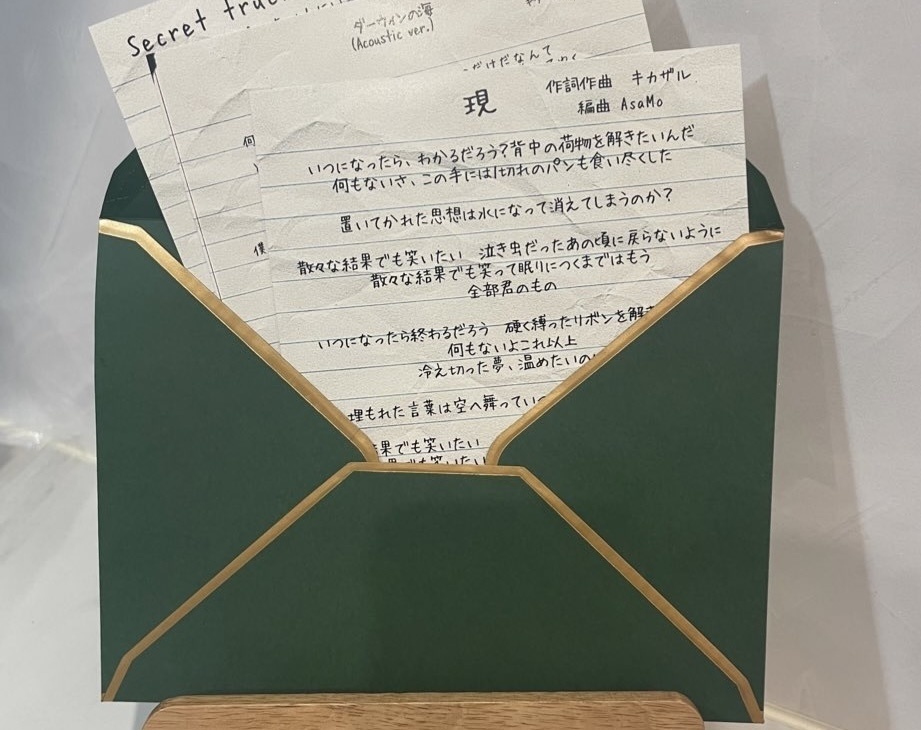 Secret
ダーウィンの海
(Acoustic ver.)
だけだなんて
何
僕
現
作詞作曲 キカザル
編曲 AsaMo
いつになったら、わかるだろう?背中の荷物を解きたいんだ
何もないさ、この手には1切れのパンも食い尽くした
置いてかれた思想は水になって消えてしまうのか?
散々な結果でも笑いたい 泣き虫だったあの頃に戻らないように
散々な結果でも笑って眠りにつくまではもう
全部君のもの
いつになったら終わるだろう 硬く縛ったリボンを解
何もないよこれ以上
冷え切った夢、温めたいの
埋もれた言葉は空へ舞ってい
果でも笑いたい
でも笑いた